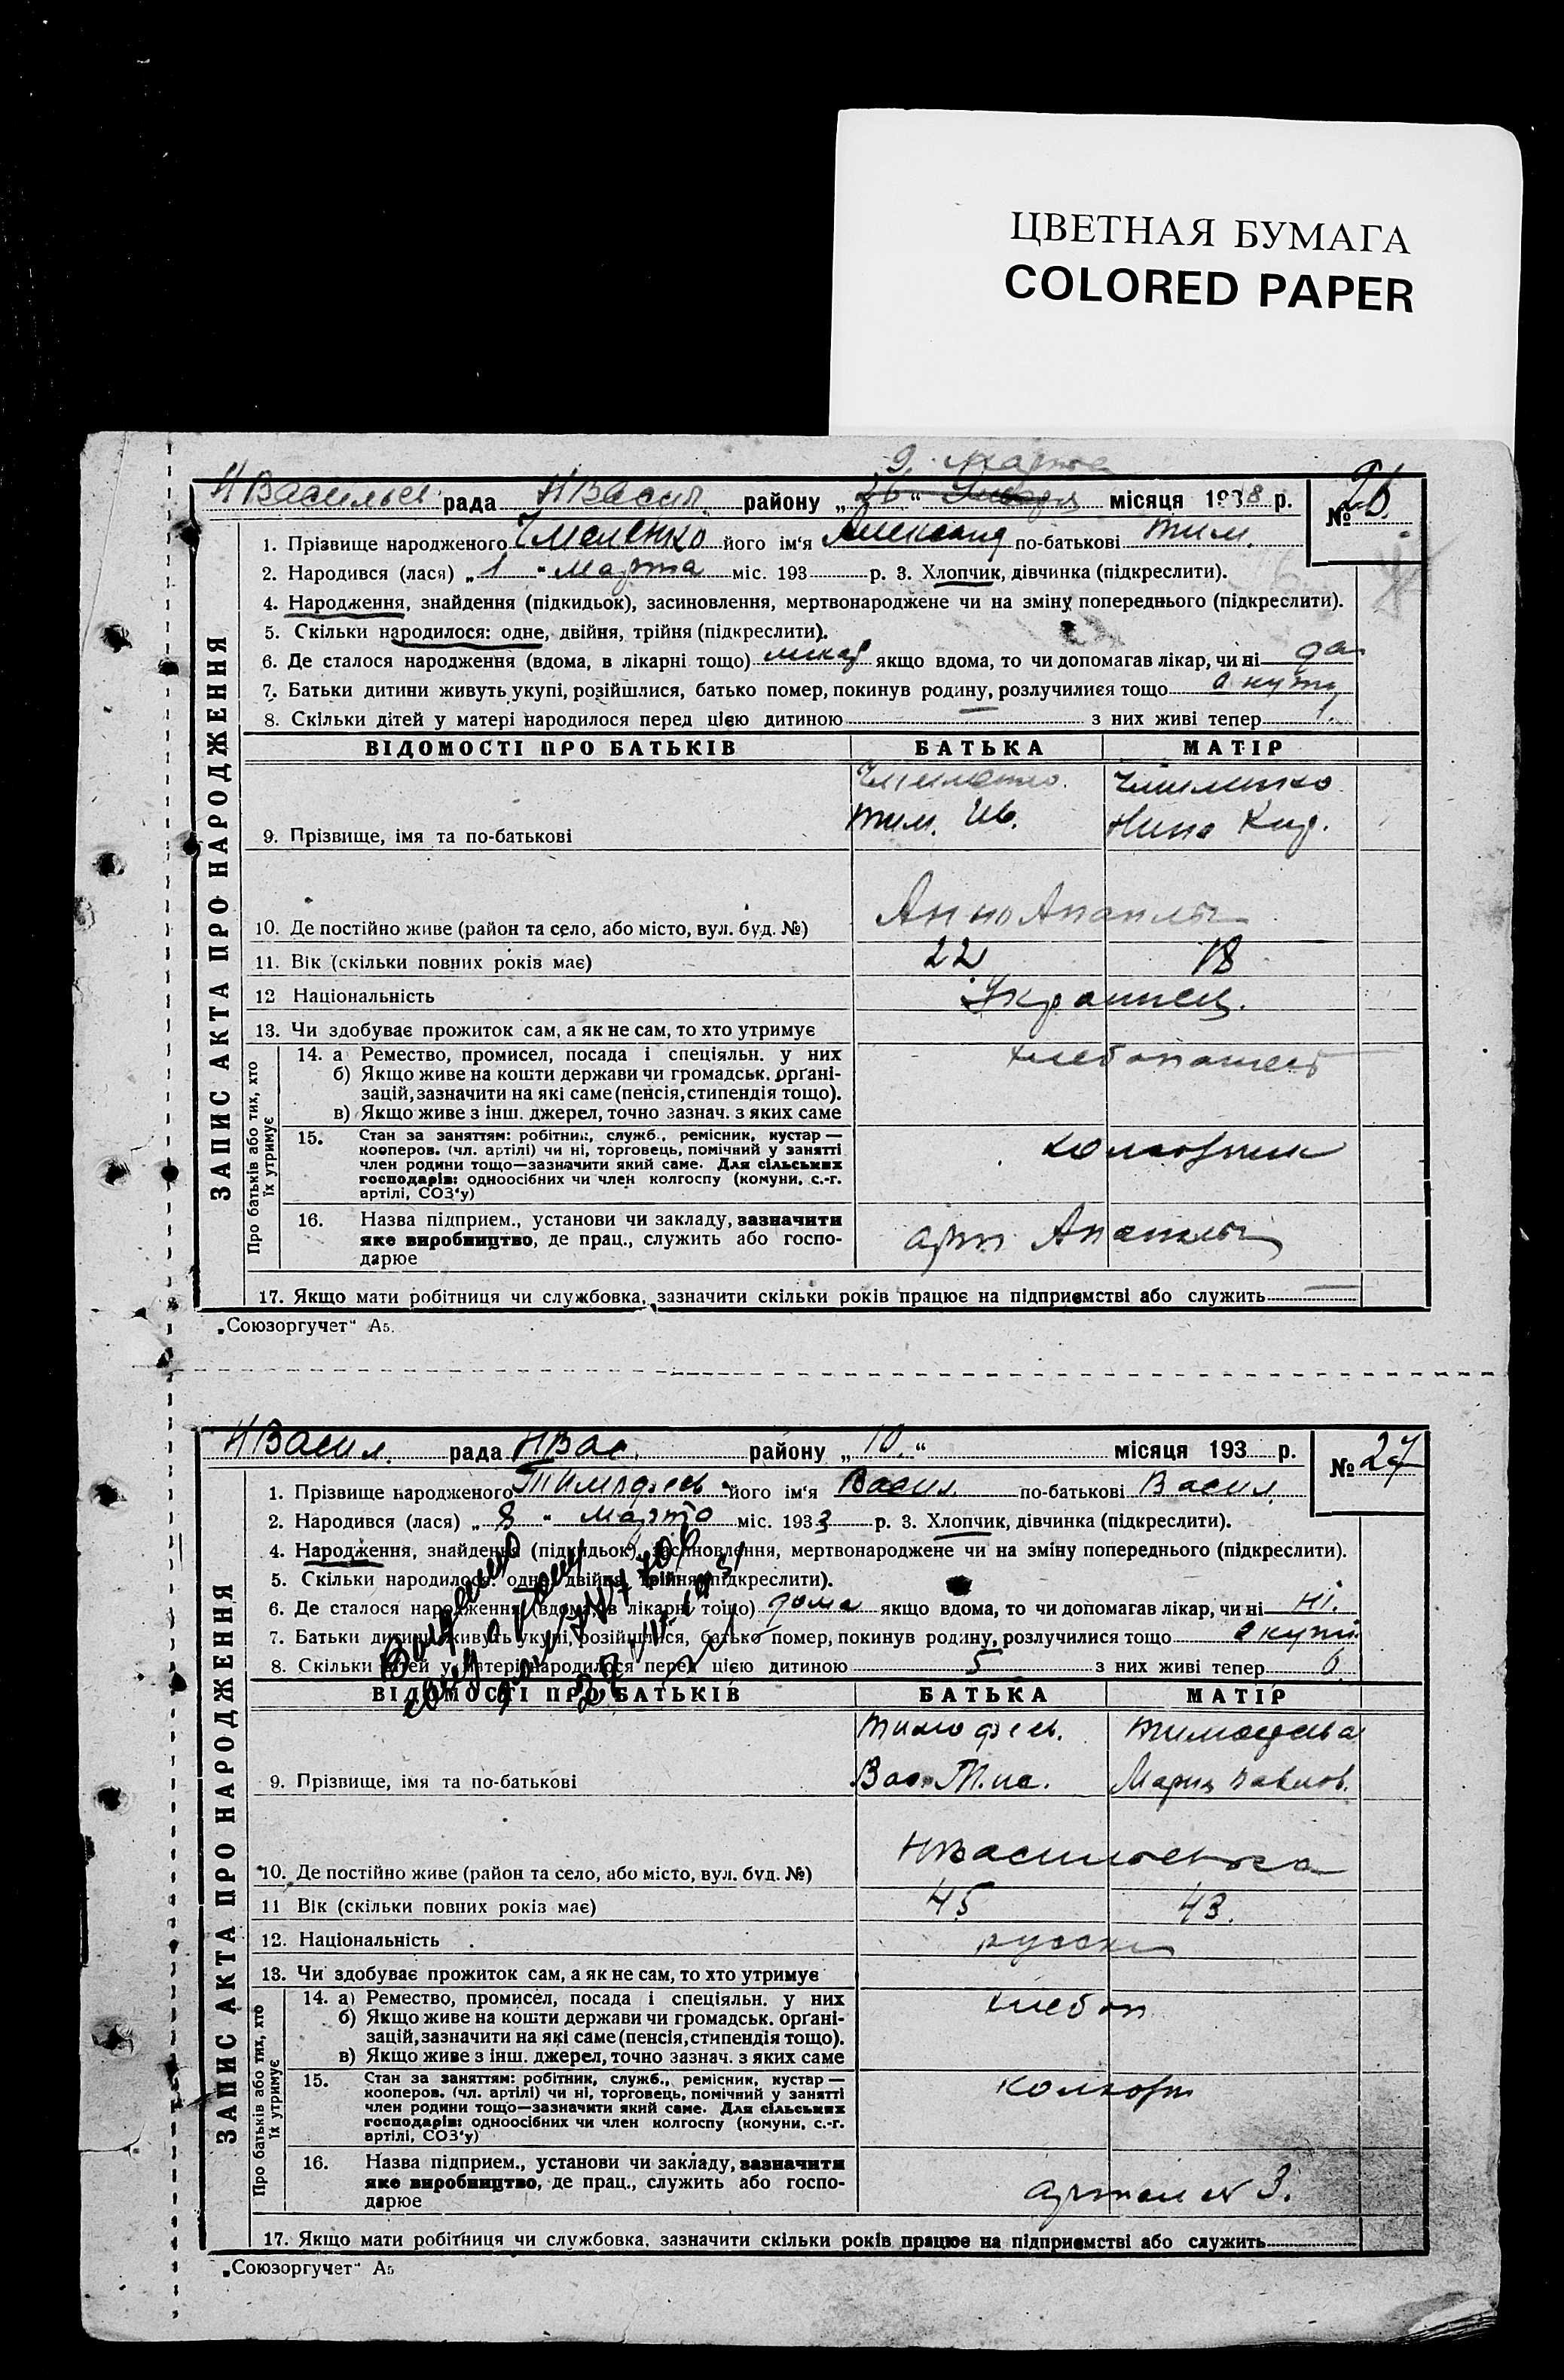 ЦВЕТНАЯ БУМАГА
COLORED PAPER
9. марта
НВасильев рада НВасил. району „26“ Января місяця 1938 р. № 26.
1. Прізвище народженого Чмеленко його ім‘я Александ по-батькові Тим.
2. Народився (лася) „1“ Марта міс. 193 р. 3. Хлопчик, дівчинка (підкреслити).
4. Народження, знайдення (підкидьок), засиновлення, мертвонароджене чи на зміну попереднього (підкреслити).
5. Скільки народилося: одне, двійня, трійня (підкреслити).
6. Де сталося народження (вдома, в лікарні тощо) якщо вдома, то чи допомагав лікар, чи ні да
7. Батьки дитини живуть укупі, розійшлися, батько помер, покинув родину, розлучилися тощо
8. Скільки дітей у матері народилося перед цією дитиною — з них живі тепер 1.
ЗАПИС АКТА ПРО НАРОДЖЕННЯ
ВІДОМОСТІ ПРО БАТЬКІВ БАТЬКА МАТІР
Тим. Ив. Нина Кир.
9. Прізвище, імя та по-батькові
10. Де постійно живе (район та село, або місто, вул. буд. №)
11. Вік (скільки повних років має) 22 18
12 Національність Украинец.
13. Чи здобуває прожиток сам, а як не сам, то хто утримує
Про батьків або тих, хто їх утримує
14. а Ремество, промисел, посада і спеціяльн. у них
б) Якщо живе на кошти держави чи громадськ. орґані-
зацій, зазначити на які саме (пенсія, стипендія тощо).
в) Якщо живе з інш. джерел, точно зазнач. з яких саме
хлебопашест
15. Стан за заняттям: робітник, служб., ремісник, кустар —
кооперов. (чл. артілі) чи ні, торговець, помічний у занятті
член родини тощо—зазначити який саме. Для сільських
господарів: одноосібних чи член колгоспу (комуни, с.-г.
артілі, СОЗ‘у)
колхозник
16. Назва підприєм., установи чи закладу, зазначити
яке виробництво, де прац., служить або госпо-
дарює
17. Якщо мати робітниця чи службовка, зазначити скільки років працює на підприємстві або служить —
„Союзоргучет“ А5.
НВасил. рада НВас. району „10.“ місяця 193 р. № 27
1. Прізвище народженого Тимофеев його ім‘я Васил по-батькові Васил.
2. Народився (лася) „8“ марта міс. 1933 р. 3. Хлопчик, дівчинка (підкреслити).
4. Народження, знайдення (підкидьок), засиновлення, мертвонароджене чи на зміну попереднього (підкреслити).
5. Скільки народилося: одне, двійня, трійня (підкреслити).
6. Де сталося народження (вдома, в лікарні тощо) дома якщо вдома, то чи допомагав лікар, чи ні ні.
7. Батьки дитини живуть укупі, розійшлися, батько помер, покинув родину, розлучилися тощо вкупі
8. Скільки дітей у матері народилося перед цією дитиною 5 з них живі тепер 6
ЗАПИС АКТА ПРО НАРОДЖЕННЯ
ВІДОМОСТІ ПРО БАТЬКІВ БАТЬКА МАТІР
Тимофеев. Тимофеева
Вас. Мария Павлов.
9. Прізвище, імя та по-батькові
10. Де постійно живе (район та село, або місто, вул. буд. №) НВасильевка
11 Вік (скільки повних років має) 45 43.
12. Національність русск
13. Чи здобуває прожиток сам, а як не сам, то хто утримує
Про батьків або тих, хто їх утримує
14. а) Ремество, промисел, посада і спеціяльн. у них
б) Якщо живе на кошти держави чи громадськ. орґані-
зацій, зазначити на які саме (пенсія, стипендія тощо).
в) Якщо живе з інш. джерел, точно зазнач. з яких саме
хлебоп
15. Стан за заняттям: робітник, служб., ремісник, кустар —
кооперов. (чл. артілі) чи ні, торговець, помічний у занятті
член родини тощо—зазначити який саме. Для сільських
господарів: одноосібних чи член колгоспу (комуни, с.-г.
артілі, СОЗ‘у)
колхозн
16. Назва підприєм., установи чи закладу, зазначити
яке виробництво, де прац., служить або госпо-
дарює
артель № 3.
17. Якщо мати робітниця чи службовка, зазначити скільки років працює на підприємстві або служить
„Союзоргучет“ А5